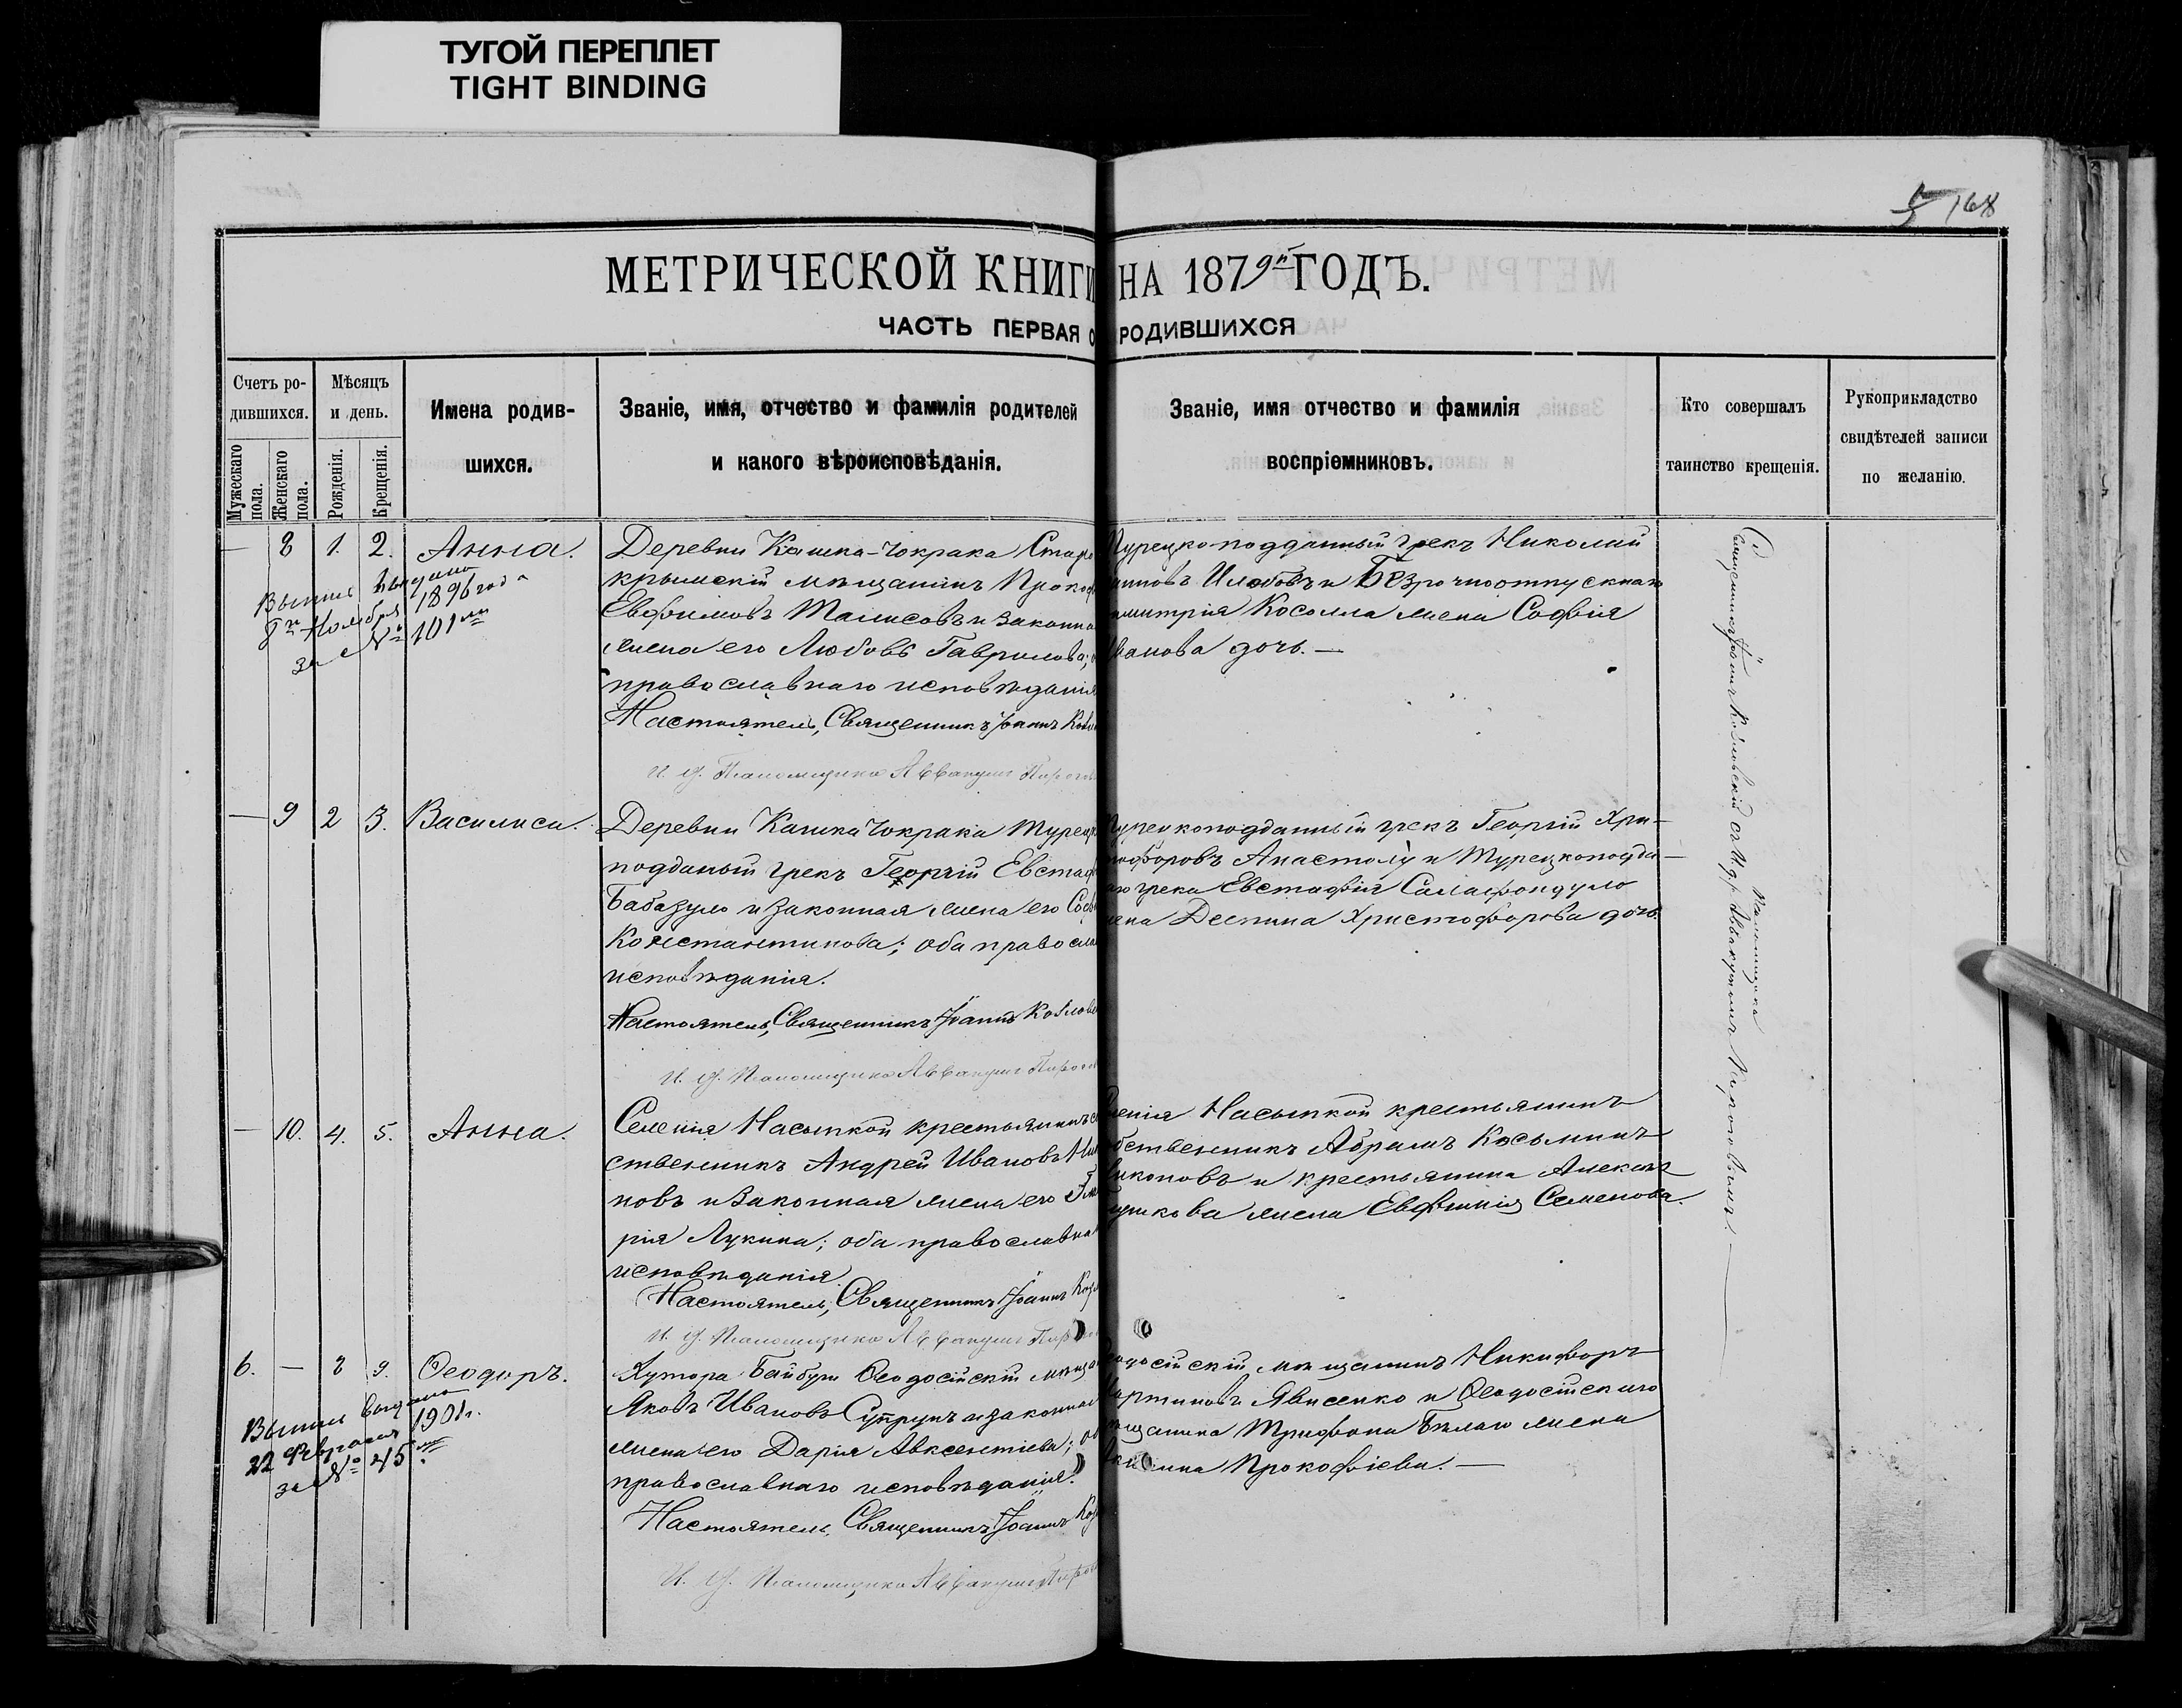 ТУГОЙ ПЕРЕПЛЕТ
TIGHT BINDING
168
МЕТРИЧЕСКОЙ КНИГИ НА 1879й ГОДЪ.
ЧАСТЬ ПЕРВАЯ О РОДИВШИХСЯ
Счетъ ро-
дившихся.
Мужескаго
пола.
Женскаго
пола.
Мѣсяцъ
и день.
Рожденія.
Крещенія.
Имена родив-
шихся.
Званіе, имя, отчество и фамилія родителей
и какого вѣроисповѣданія.
Званіе, имя отчество и фамилія
воспріемниковъ.
Кто совершалъ
таинство крещенія.
Рукоприкладство
свидѣтелей записи
по желанію.
— 8 1. 2. Анна.
Выпись выдана
8го Ноября 1896 года
за № 101мъ
Деревни Кашка-Чокрака Старо
крымскій мѣщанинъ Прокоф
Евфимовъ Талисовъ и законна
жена его Любовь Гаврилова;
православнаго исповѣданія
Настоятель, Священникъ Іоаннъ
И. д. Псаломщика Аввакумъ
Турецкоподданный грекъ Николай
Илюбовъ и Безсрочноотпускнаго
имитрія Косолла жена Софія
ванова дочь. —
— 9 2 3. Василиса.
Деревни Кашка Чокрака Турецк
подданый грекъ Георгій Евстаф
Бабазуло и законная жена его Соф
Константинова; оба правосла
исповѣданія.
Настоятель, Священникъ Іоаннъ Козловс
И. д. Псаломщика Аввакумъ
Турецкоподданный грекъ Георгій Хри-
тофоровъ Анастолу и Турецкоподда-
го грека Евстафія Салафондуло
жена Деспина Христофорова дочь.
— 10. 4. 5. Анна.
Селенія Насыпкой крестьянинъ со
ственникъ Андрей Ивановъ Ник
новъ и законная жена его Гли
рія Лукина; оба православна
исповѣданія.
Настоятель, Священникъ Іоаннъ Коз
И. д. Псаломщика Аввакумъ
ленія Насыпкой крестьянинъ
бственникъ Абрамъ Косьминъ
иконовъ и крестьянина
жена Евфимія Семенова.
6. — 8 9. Ѳеодоръ.
Выпись выдана
22 Февраля 1901 г.
за № 45мъ
Хутора Байбуги Ѳеодосійскій мѣща
Яковъ Ивановъ Супрунъ и законная
жена его Дарія Авксентіева; об
православнаго исповѣданія.
Настоятель, Священникъ Іоаннъ Коз
И. д. Псаломщика Аввакумъ
одосійскій мѣщанинъ Никифоръ
артиновъ Явисенко и Ѳеодосійскаго
ѣщанина Трифона Бѣлаго жена
Прокофіева. —
Священникъ Іоаннъ Козловскій съ И. д. Псаломщика
Аввакумомъ Пироговымъ. —